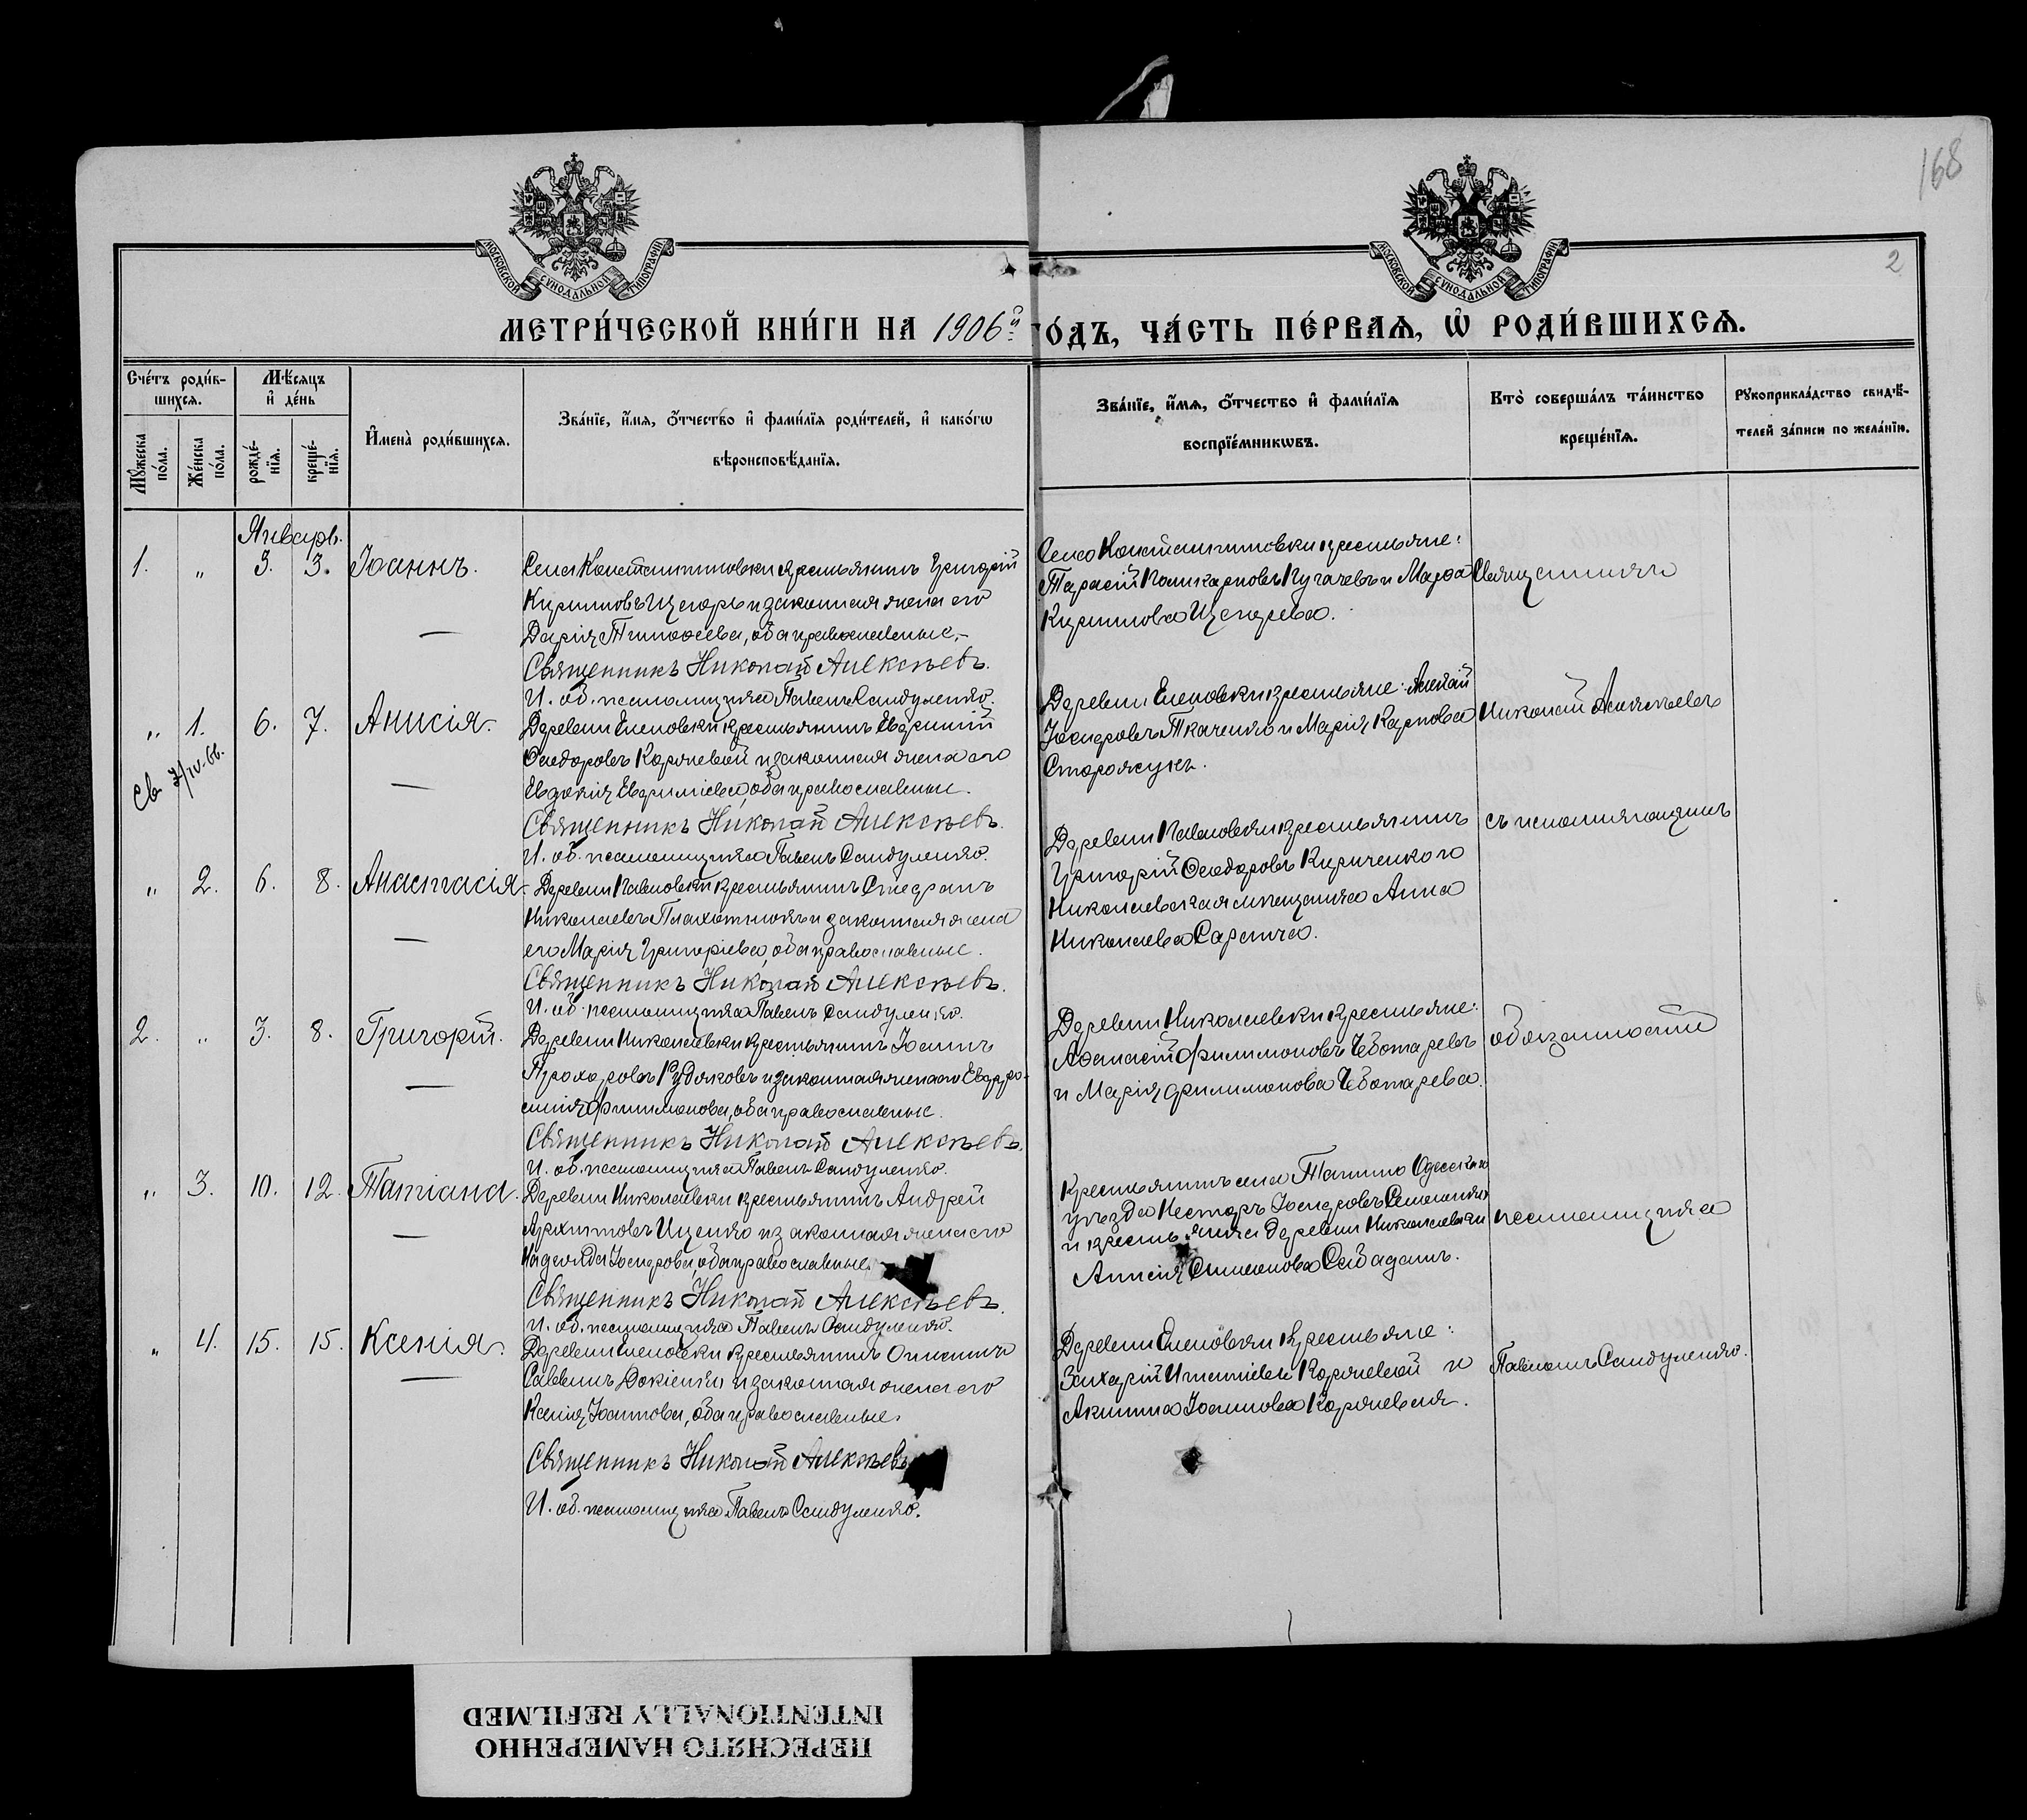 168
2
МОСКОВСКОЙ СѴНОДАЛЬНОЙ ТИПОГРАФІИ
МОСКОВСКОЙ СѴНОДАЛЬНОЙ ТИПОГРАФІИ
МЕТРИ́ЧЕСКОЙ КНИ́ГИ НА 1906й ГО́ДЪ, ЧА́СТЬ ПЕ́РВАѦ, Ѡ҆ РОДИ́ВШИХСѦ.
Сче́тъ роди́в-
шихсѧ.
Мꙋ́жеска по́ла.
Же́нска по́ла.
Мѣ́сѧцъ
и҆ де́нь
рожде́-
нїѧ.
креще́-
нїѧ.
И҆мена̀ роди́вшихсѧ.
Зва́нїе, и҆́мѧ, ѻ҆́тчество и҆ фами́лїѧ роди́телей, и҆ како́гѡ
вѣроисповѣ́данїѧ.
Зва́нїе, и҆́мѧ, ѻ҆́тчество и҆ фами́лїѧ
воспрїе́мникѡвъ.
Кто̀ соверша́лъ та́инство
креще́нїѧ.
Рꙋкоприкла́дство свидѣ́-
телей за́писи по жела́нїю.
Январь.
1. „ 3. 3. Іоаннъ.
Села Константиновки крестьянинъ Григорій
Кирилловъ Щегорь и законная жена его
Дарія Тимоѳеева, оба православные.
Священникъ Николай Алексѣевъ.
И. об. псаломщика Павелъ Сандуленко.
Села Константиновки крестьяне:
Тарасій Поликарповъ Пугачевъ и Марѳа
Кириллова Щегорева.
Священникъ
„ 1. 6. 7. Анисія.
Св. 7/IV.66.
Деревни Еленовки крестьянинъ Евфимій
Ѳеодоровъ Коржевой и законная жена его
Евдокія Евфиміева, оба православные.
Священникъ Николай Алексѣевъ.
И. об. псаломщика Павелъ Сандуленко.
Деревни Еленовки крестьяне:
Іосифовъ Ткаченко и Марія Карпова
Сторожукъ.
Николай Алексѣевъ
„ 2. 6. 8. Анастасія.
Деревни Павловки крестьянинъ Стефанъ
Николаевъ Плахотнюкъ и законная жена
его Марія Григоріева, оба православные.
Священникъ Николай Алексѣевъ.
И. об. псаломщика Павелъ Сандуленко.
Деревни Павловки крестьянинъ
Григорій Ѳеодоровъ Кириченко и
Николаевская мѣщанка Анна
Николаева
съ исполняющимъ
2. „ 3. 8. Григорій.
Деревни Николаевки крестьянинъ Іоаннъ
Прохоровъ Рудяковъ и законная жена его Евфро-
синія Филимонова, оба православные.
Священникъ Николай Алексѣевъ.
И. об. псаломщика Павелъ Сандуленко.
Деревни Николаевки крестьяне:
Аѳанасій Филимоновъ Чеботаревъ
и Марія Филимонова Чеботарева.
обязанности
„ 3. 10. 12. Татіана.
Деревни Николаевки крестьянинъ Андрей
Архиповъ Ищенко и законная жена его
Надежда Іосифова, оба православные.
Священникъ Николай Алексѣевъ.
И. об. псаломщика Павелъ Сандуленко.
Крестьянинъ села Татино Одесскаго
уѣзда Несторъ Іосифовъ
и крестьянка деревни Николаевки
Анисія Симеонова
псаломщика
„ 4. 15. 15. Ксенія.
Деревни Еленовки крестьянинъ
Саввинъ Докіенко и законная жена его
Ксенія Іоаннова, оба православные.
Священникъ Николай Алексѣевъ
И. об. псаломщика Павелъ Сандуленко.
Деревни Еленовки крестьяне:
Захарій Игнатіевъ Коржевой и
Акилина Іоаннова Коржевая.
Павломъ Сандуленко.
ПЕРЕСНЯТО НАМЕРЕННО
INTENTIONALLY REFILMED